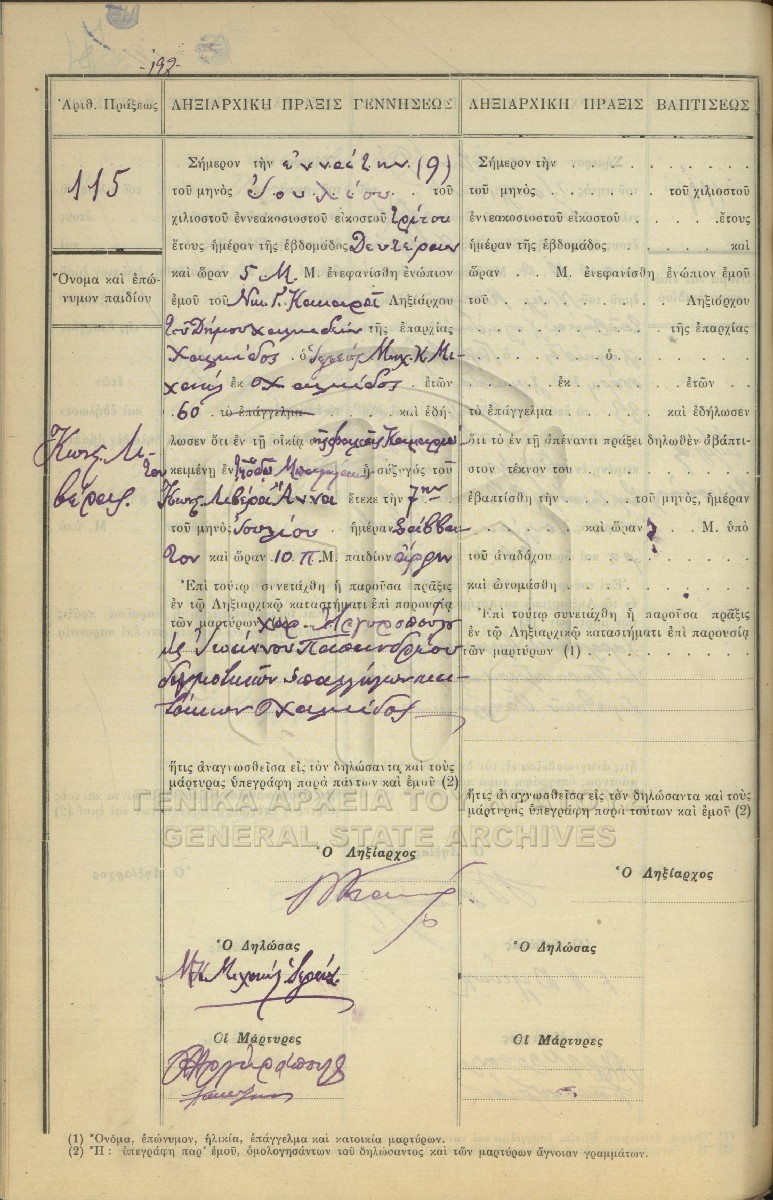 -192-
Ἀριθ. Πράξεως
115
Ὄνομα καὶ ἐπώ-
νυμον παιδίου
Κωνς. Λι-
βέρης.
ΛΗΞΙΑΡΧΙΚΗ ΠΡΑΞΙΣ ΓΕΝΝΗΣΕΩΣ
Σήμερον τὴν ἐννάτην (9)
τοῦ μηνὸς Ἰουλίου . τοῦ
χιλιοστοῦ ἐννεακοσιοστοῦ εἰκοστοῦ τρίτου
ἔτους ἡμέραν τῆς ἑβδομάδος Δευτέραν
καὶ ὥραν 5 Μ. Μ. ἐνεφανίσθη ἐνώπιον
ἐμοῦ τοῦ Νικ. Γ. Ληξιάρχου
τοῦ Δήμου Χαλκιδέων τῆς ἐπαρχίας
Χαλκίδος . ὁ Ἰερεὺς Μιχ. Κ. Μι-
χαὴλ ἐκ Χαλκίδος . ἐτῶν
60 . τὸ ἐπάγγελμα καὶ ἐδή-
λωσεν ὅτι ἐν τῇ οἰκίᾳ
κειμένῃ ἐν ὁδῷ ἡ σύζυγος τοῦ
Κωνς. Λιβέρη Ἄννα ἔτεκε τὴν 7ην
τοῦ μηνὸς Ἰουλίου . ἡμέραν Σάββα-
τον καὶ ὥραν 10 . Π . Μ. παιδίον ἄρρεν
Ἐπὶ τούτῳ συνετάχθη ἡ παροῦσα πρᾶξις
ἐν τῷ Ληξιαρχικῷ καταστήματι ἐπὶ παρουσίᾳ
τῶν μαρτύρων Χαρ. Ἀργυροπούλου
Ἰωάννου Παπανδρέου
δημοτικῶν ὑπαλλήλων κα-
τοίκων Χαλκίδος
ἥτις ἀναγνωσθεῖσα εἰς τὸν δηλώσαντα καὶ τοὺς
μάρτυρας ὑπεγράφη παρὰ πάντων καὶ ἐμοῦ (2)
Ὁ Ληξίαρχος
Ὁ Δηλώσας
Μ. Κ. Μιχαὴλ Ἱερεύς.
Οἱ Μάρτυρες
ΛΗΞΙΑΡΧΙΚΗ ΠΡΑΞΙΣ ΒΑΠΤΙΣΕΩΣ
Σήμερον τὴν . . . . . . . . . . .
τοῦ μηνὸς . . . . . . . τοῦ χιλιοστοῦ
ἐννεακοσιοστοῦ εἰκοστοῦ . . . . . .ἔτους
ἡμέραν τῆς ἑβδομάδος . . . . . . καὶ
ὥραν . . Μ. ἐνεφανίσθη ἐνώπιον ἐμοῦ
τοῦ . . . . . . . . . . Ληξιάρχου
. . . . . . . . . . τῆς ἐπαρχίας
. . . . . . . ὁ . . . . . . .
. . . . . . ἐκ . . . . . ἐτῶν . .
τὸ ἐπάγγελμα . . . . . . καὶ ἐδήλωσεν
ὅτι τὸ ἐν τῇ ἀπέναντι πράξει δηλωθὲν ἀβάπτι-
στον τέκνον του . . . . . . . . .
ἐβαπτίσθη τὴν . . . . .τοῦ μηνός, ἡμέραν
. . . . . . . καὶ ὥραν . . Μ. ὑπὸ
τοῦ ἀναδόχου . . . . . . . . . .
καὶ ὠνομάσθη . . . . . . . . . .
Ἐπὶ τούτῳ συνετάχθη ἡ παροῦσα πρᾶξις
ἐν τῷ Ληξιαρχικῷ καταστήματι ἐπὶ παρουσίᾳ
τῶν μαρτύρων (1) . . . . . . . . .
ἥτις ἀναγνωσθεῖσα εἰς τὸν δηλώσαντα καὶ τοὺς
μάρτυρας ὑπεγράφη παρὰ τούτων καὶ ἐμοῦ (2)
Ὁ Ληξίαρχος
Ὁ Δηλώσας
Οἱ Μάρτυρες
ΓΕΝΙΚΑ ΑΡΧΕΙΑ ΤΟΥ
GENERAL STATE ARCHIVES
(1) Ὄνομα, ἐπώνυμον, ἡλικία, ἐπάγγελμα καὶ κατοικία μαρτύρων.
(2) Ἢ : ὑπεγράφη παρ' ἐμοῦ, ὁμολογησάντων τοῦ δηλώσαντος καὶ τῶν μαρτύρων ἄγνοιαν γραμμάτων.